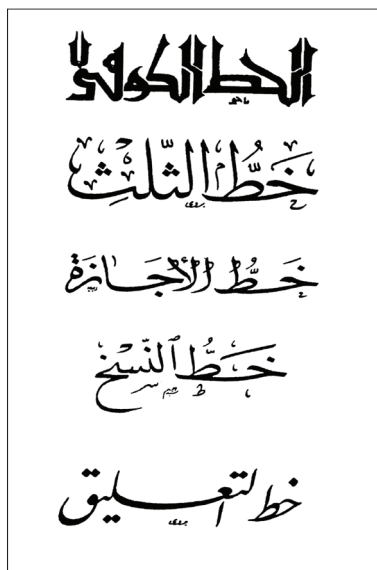 الخط الكوفي
خَطُّ الثُّلُثِ
خَطُّ الأجَازَة
خَطُّ النَّسْخ
خط التعليق